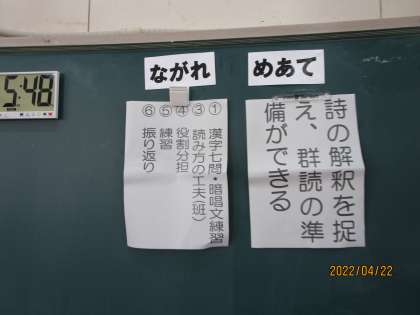 めあて
詩の解釈を捉
え、群読の準
備ができる
ながれ
①漢字七問・暗唱文練習
③読み方の工夫(班)
④役割分担
⑤練習
⑥振り返り
5:48
2022/04/22